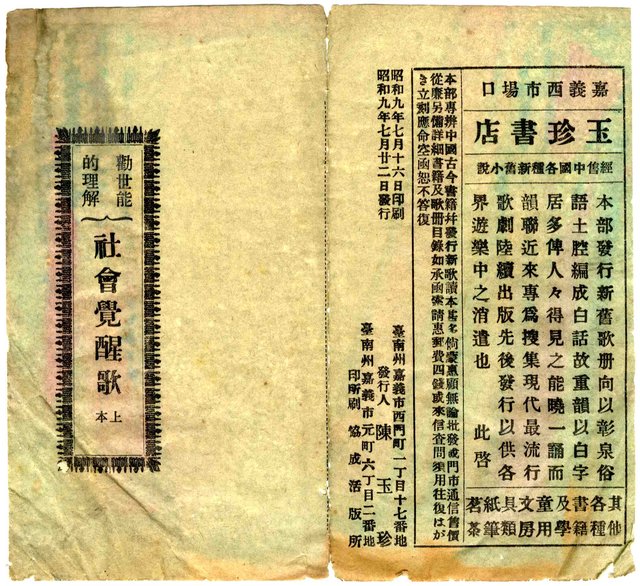 嘉義西市場口
玉珍書店
經舊中國各種新舊小說
本部發行新舊歌册向以彰泉俗
語土腔編成白話故重韻以白字
居多俾人々得見之能曉一誦而
韻聯近來專爲搜集現代最流行
歌劇陸續出版先後發行以供各
界遊樂中之消遣也　此啓
其他各種書籍及學童用文房具類紙筆茗茶
本部專辨中國古今書籍幷發行新歌讀本甚多倘蒙惠顧無論批發或門市通信售價
從廉另備詳細書籍及歌册目錄如承函索請惠郵費四錢或來信查問須用往復はが
き立刻應命空函恕不答復
昭和九年七月十六日印刷
昭和九年七月廿二日發行
臺南州嘉義市西門町一丁目十七番地
發行人　陳玉珍
臺南州嘉義市元町六丁目二番地
印刷所　協成活版所
勸世能
的理解
社會覺醒歌
上本